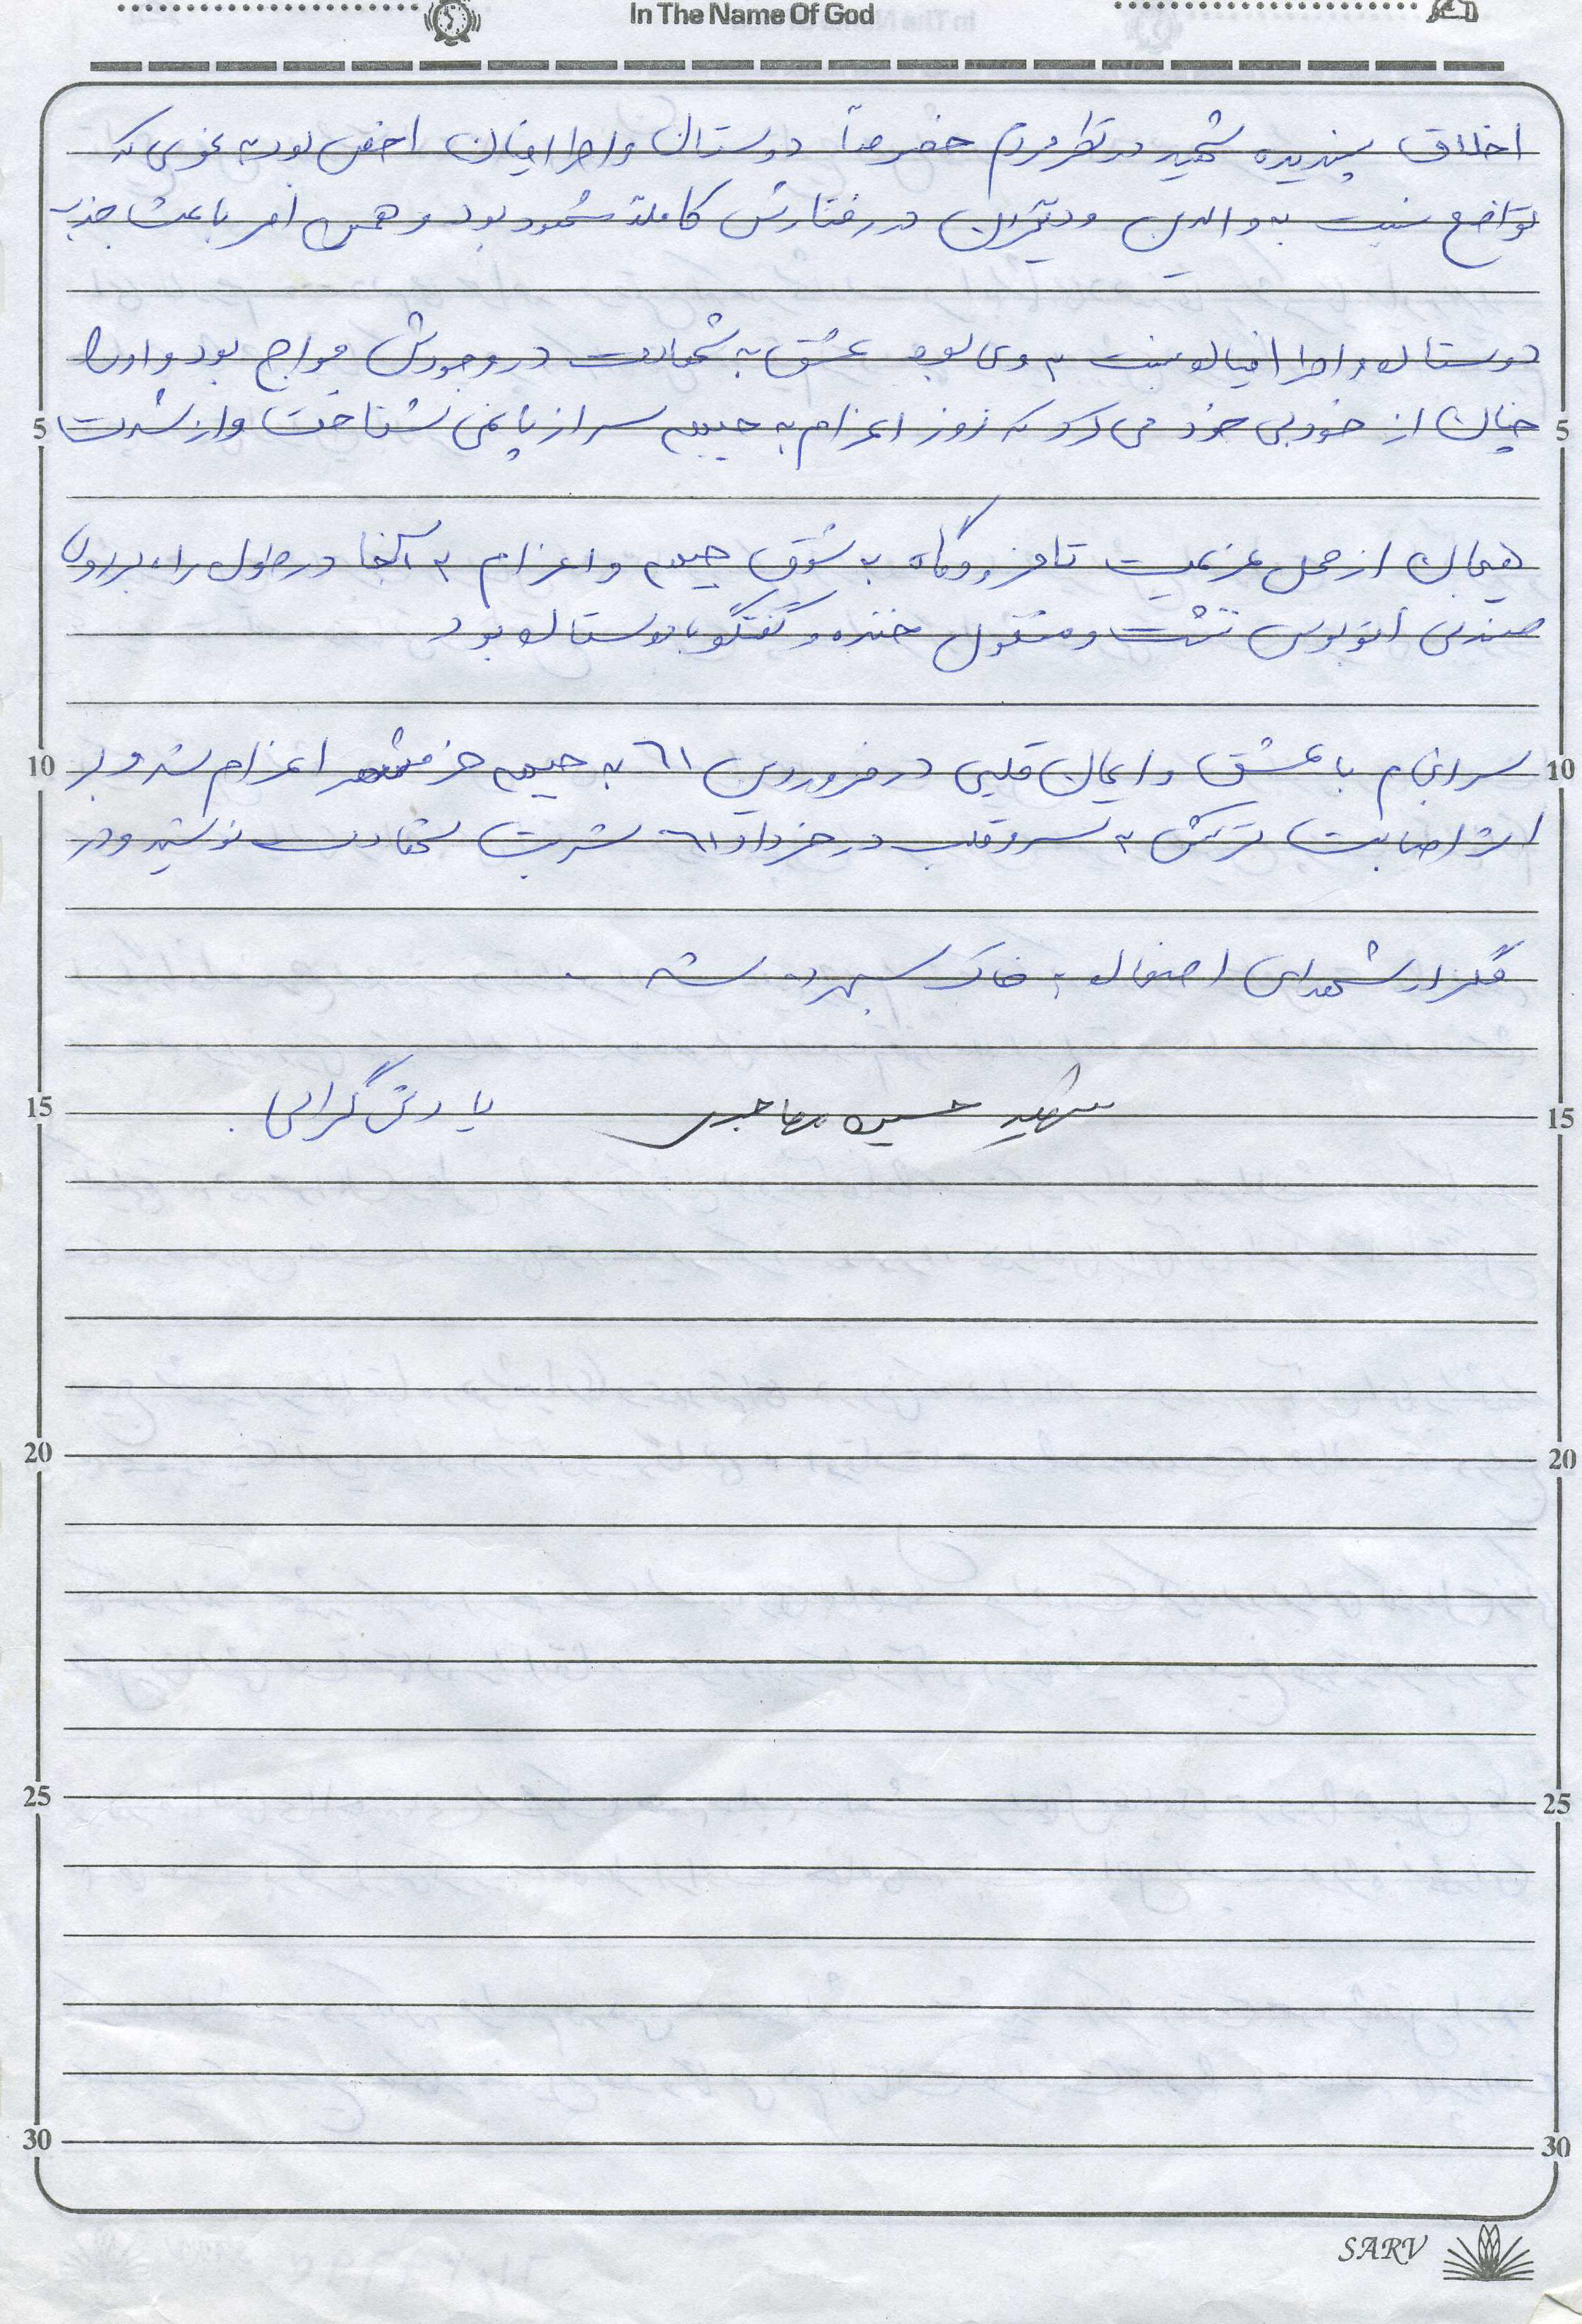 In The Name Of God
اخلاق پسندیده شهید در نظر مردم خصوصاً دوستان و اطرافیان اخص بوده بنحوی که
تواضع نسبت به والدین و دیگران در رفتارش کاملاً مشهود بود و همین امر باعث جذب
دوستان و اطرافیان نسبت به وی بود عشق به شهادت در وجودش مواج بود و او را
5 چنان از خود بی خود می کرد که روز اعزام به جبهه سر از پا نمی شناخت و از شدت 5
هیجان از محل عزیمت تا فرودگاه به شوق جبهه و اعزام به آنجا در طول راه بر روی
صندلی اتوبوس ننشست و مشغول خنده و گفتگو با دوستان بود
10 سرانجام با عشق و ایمان قلبی در فروردین ٦١ به جبهه خرمشهر اعزام شد و بر 10
اثر اصابت ترکش به سر و قلب در خرداد ٦١ شربت شهادت نوشید و در
گلزار شهدای اصفهان به خاک سپرده شد .
15 شهید حسین مهاجری یادش گرامی . 15
20 20
25 25
30 30
SARV